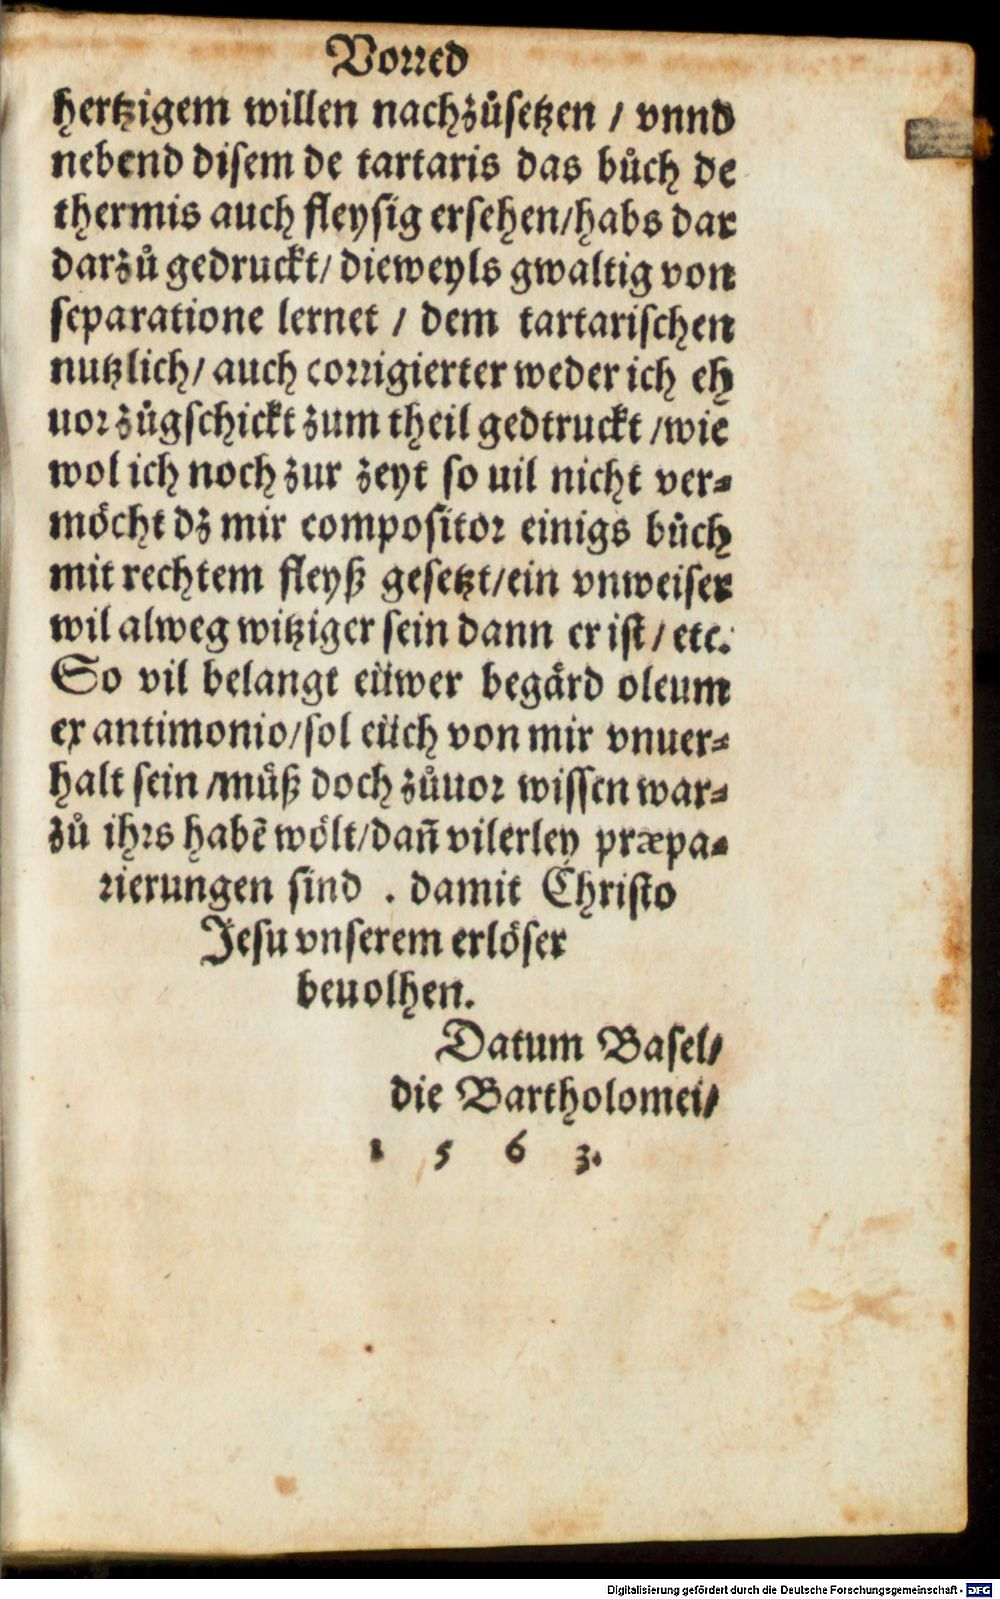 Vorred
hertzigem willen nachzůsetzen / vnnd
nebend disem de tartaris das bůch de
thermis auch fleysig ersehen/habs dar
darzů gedruckt/ dieweyls gwaltig von
separatione lernet / dem tartarischen
nutzlich/ auch corrigierter weder ich eh
uor zůgschickt zum theil gedtruckt /wie
wol ich noch zur zeyt so uil nicht ver⸗
möcht dz mir compositor einigs bůch
mit rechtem fleyß gesetzt/ein vnweiser
wil alweg witziger sein dann er ist/ etc.
So vil belangt eüwer begärd oleum
ex antimonio/sol eüch von mir vnuer⸗
halt sein /můß doch zůuor wissen war⸗
zů ihrs habẽ wölt/dañ vilerley præpa⸗
rierungen sind . damit Christo
Jesu vnserem erlöser
beuolhen.
Datum Basel/
die Bartholomei/
1 5 6 3.
Digitalisierung gefördert durch die Deutsche Forschungsgemeinschaft - DFG